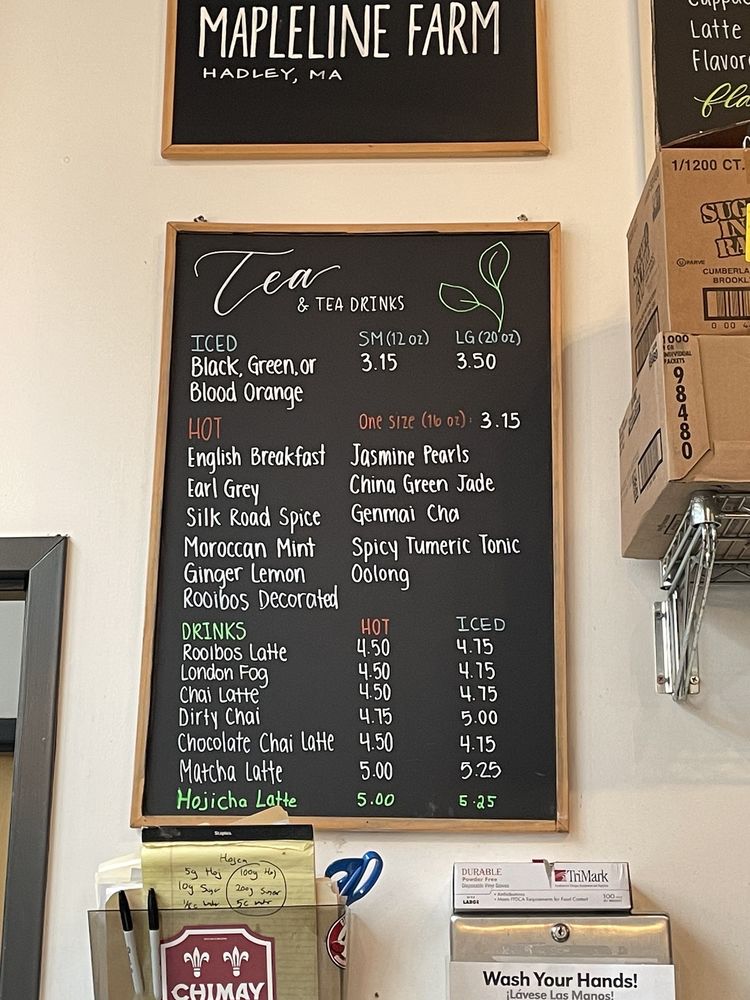 MAPLELINE FARM
HADLEY, MA
Latte
Tea
& TEA DRINKS
ICED SM (12 oz) LG (20 oz)
Black, Green, or 3.15 3.50
Blood Orange
HOT One size (16 oz): 3.15
English Breakfast Jasmine Pearls
Earl Grey China Green Jade
Silk Road Spice Genmai Cha
Moroccan Mint Spicy Tumeric Tonic
Ginger Lemon Oolong
Rooibos Decorated
DRINKS HOT ICED
Rooibos Latte 4.50 4.75
London Fog 4.50 4.75
Chai Latte 4.50 4.75
Dirty Chai 4.75 5.00
Chocolate Chai Latte 4.50 4.75
Matcha Latte 5.00 5.25
Hojicha Latte 5.00 5.25
1/1200 CT.
SUG
IN
RA
PARVE
CUMBERLA
BROOKL
1000
INDIVIDUAL
PACKETS
98480
Staples
5g Hoj 100g Hoj
10g Sugar 200g Sugar
CHIMAY
DURABLE
Powder Free
Disposable Vinyl Gloves
LARGE
TriMark
Wash Your Hands!
¡Lávese Las Manos!